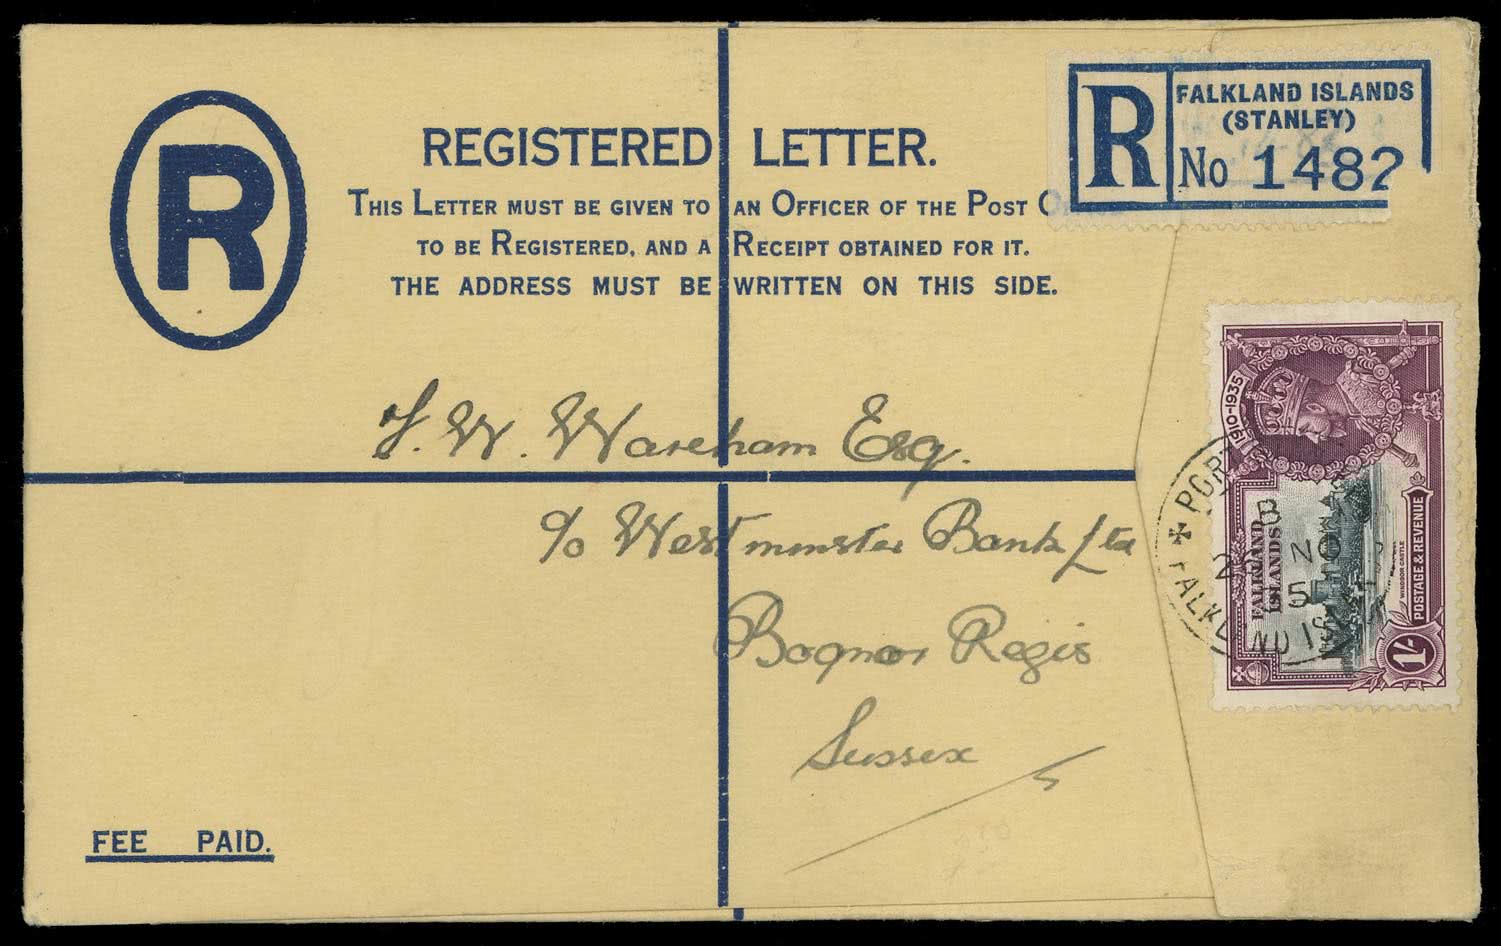 R
REGISTERED LETTER.
THIS LETTER MUST BE GIVEN TO AN OFFICER OF THE POST
TO BE REGISTERED, AND A RECEIPT OBTAINED FOR IT.
THE ADDRESS MUST BE WRITTEN ON THIS SIDE.
R
FALKLAND ISLANDS
(STANLEY)
No 1482
W. Wareham Esq.
c/o Westminster Bank Ltd
Bognor Regis
Sussex
FEE PAID.
1910-1935
FALKLAND
ISLANDS
WINDSOR CASTLE
POSTAGE & REVENUE
1/-
PORT
B
NO
FALKLAND IS